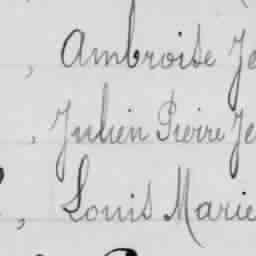 , Ambroise Je
, Julien Pierre Je
, Louis Marie